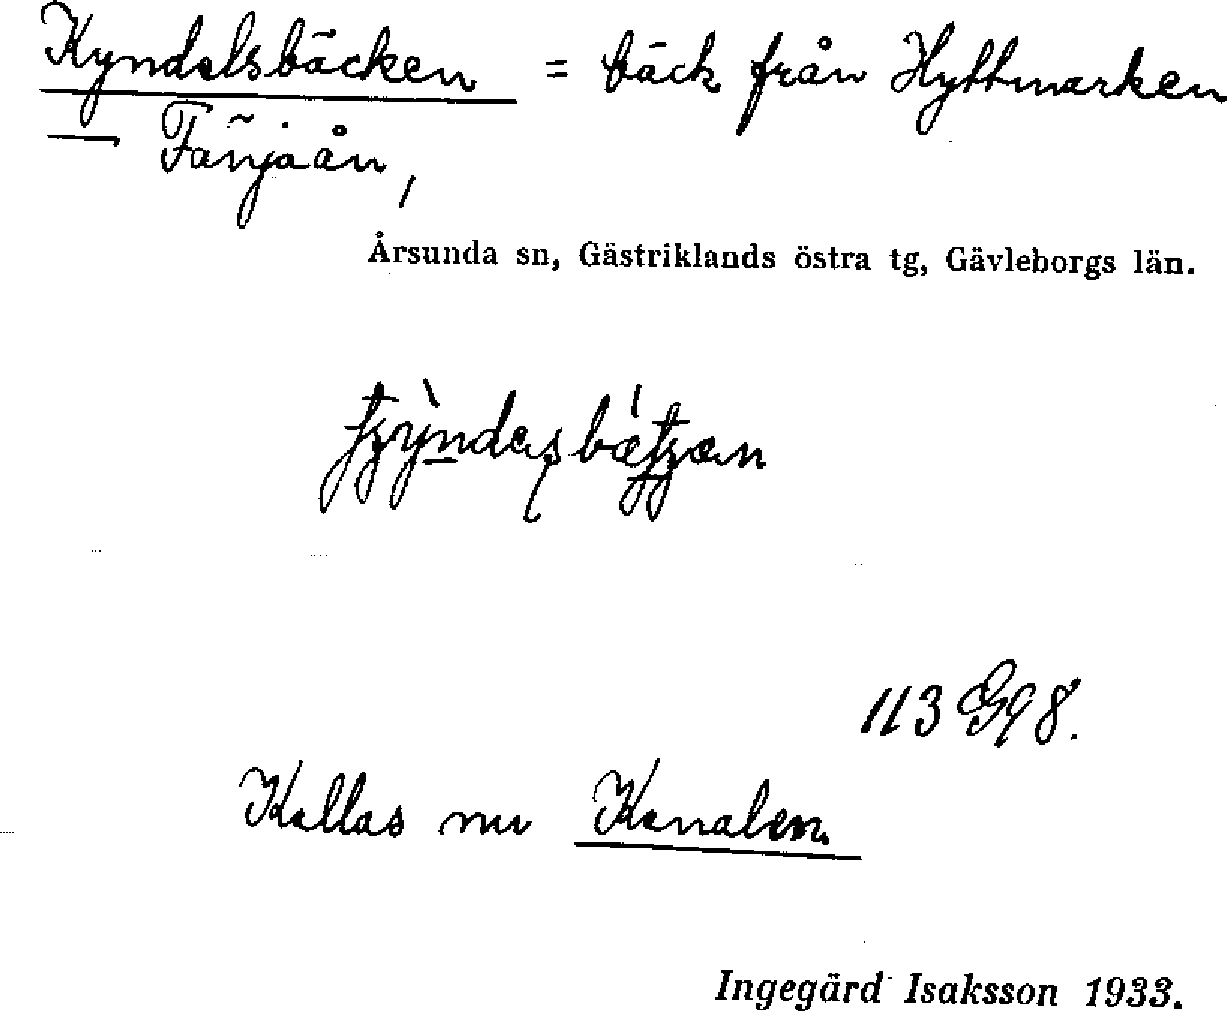 Kyndelsbäcken = bäck från Hyttmarken
— Fänjaån,
Årsunda sn, Gästriklands östra tg, Gävleborgs län.
113 G 98.
Kallas nu Kanalen.
Ingegärd Isaksson 1933.